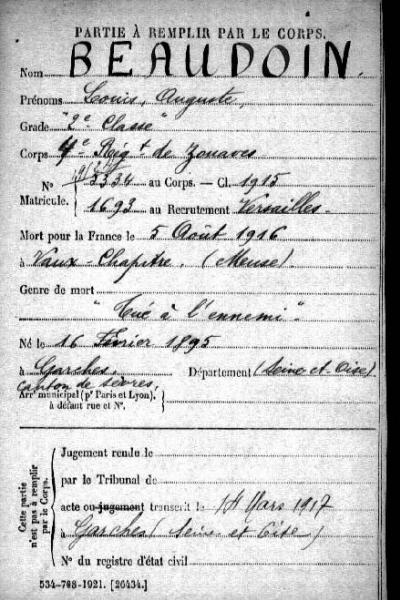 PARTIE À REMPLIR PAR LE CORPS.
Nom BEAUDOIN.
Prénoms Louis, Auguste,
Grade "2e Classe"
Corps 4e Régt de Zouaves
No 5334 au Corps. — Cl. 1915
Matricule. 1693 au Recrutement Versailles.
Mort pour la France le 5 Août 1916
à Vaux-Chapitre, (Meuse)
Genre de mort
"Tué à l'ennemi".
Né le 16 Février 1895
à Garches, Département (Seine-et-Oise)
canton de Sèvres,
Arrt municipal (pr Paris et Lyon),
à défaut rue et No.
Jugement rendu le
par le Tribunal de
acte ou jugement transcrit le 14 Mars 1917
à Garches (Seine et Oise)
No du registre d'état civil
Cette partie
n'est pas à remplir
par le Corps.
534-708-1921. [26434.]